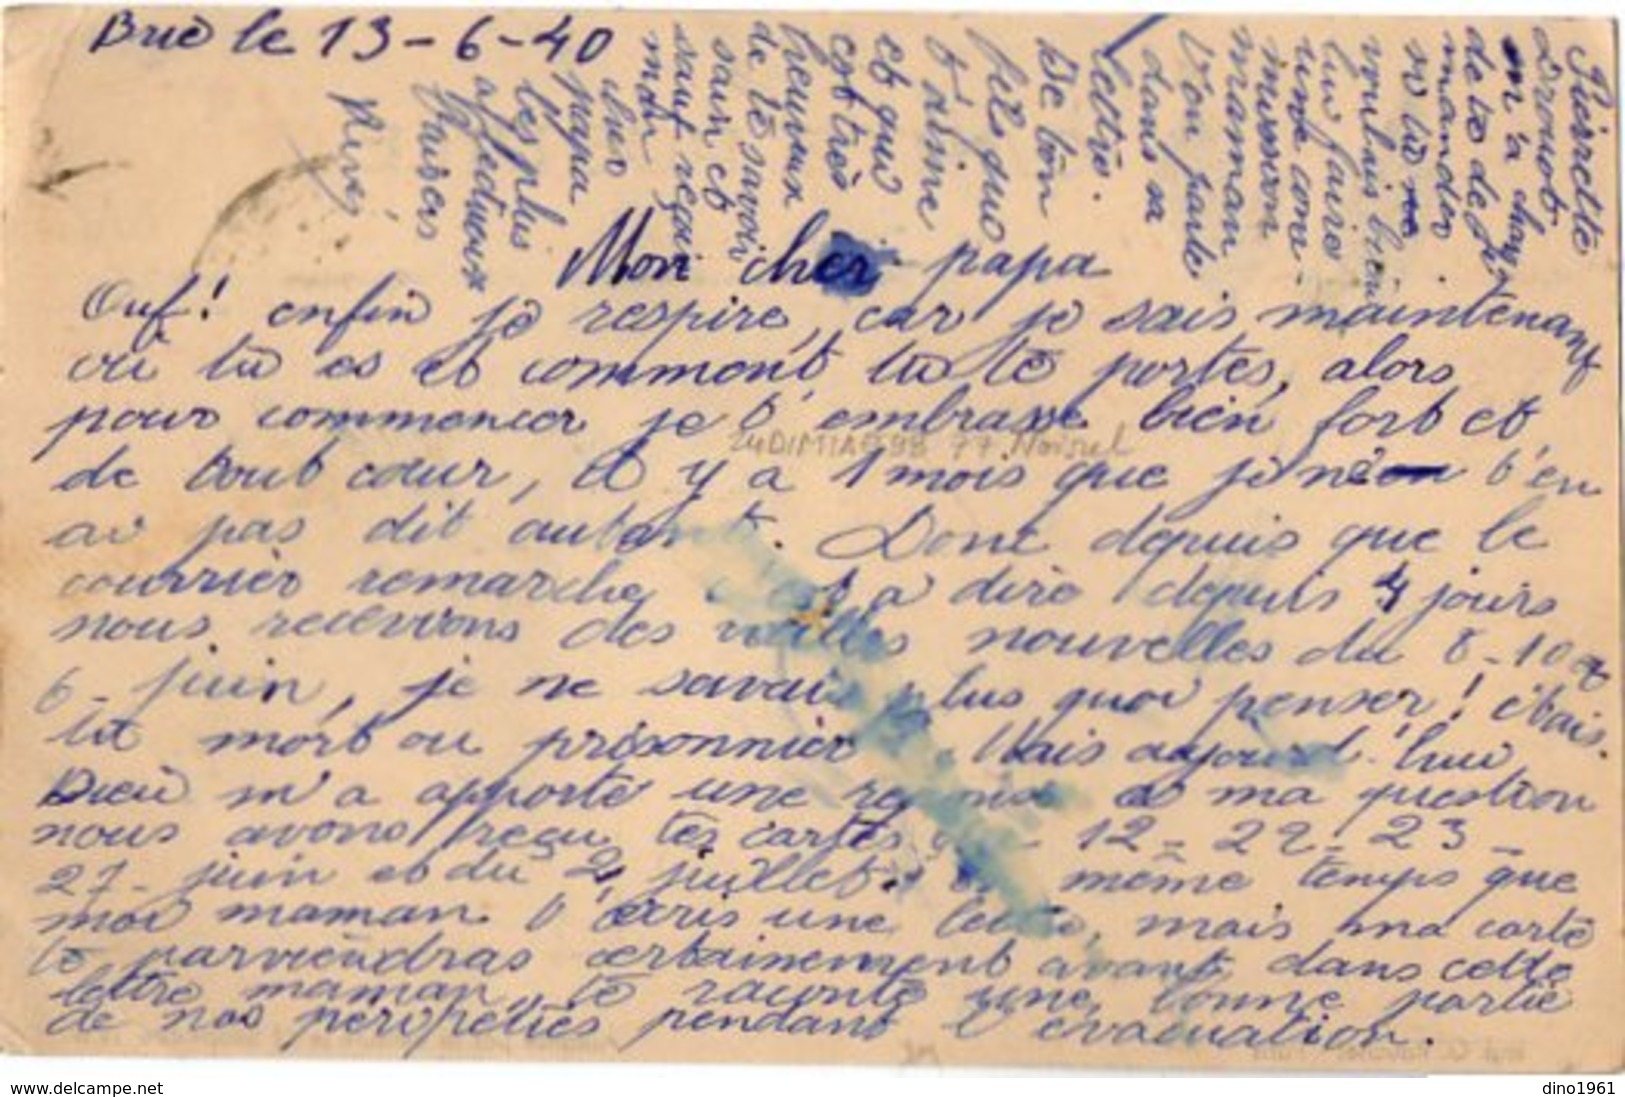 Brie le 13-6-40
Mon cher papa
Ouf! enfin je respire, car je sais maintenant
où tu es et comment tu te portes, alors
pour commencer je t'embrasse bien fort et
de tout cœur, il y a 1 mois que je ne t'en
ai pas dit autant. Donc depuis que le
courrier remarche c'est a dire depuis 4 jours
nous recevions des nouvelles du 8-10 et
6- juin, je ne savais plus quoi penser! étais-
tu mort ou prisonnier Mais aujourd'hui
Dieu m'a apporté une réponse a ma question
nous avons reçu tes cartes du - 12 - 22 - 23 -
27 - juin et du 2 juillet. En même temps que
moi maman t'écris une lettre, mais ma carte
te parviendras certainement avant, dans cette
lettre maman, te raconte une bonne partie
de nos péripéties pendant l'évacuation.
Pierrette
Drouot
m'a chargé
de te de
mander
si tu
voulais bien
lui faire
une com-
mission
maman
t'en parle
dans sa
lettre.
De ton
fils que
t'aime
et qui
est très
heureux
de te savoir
sain et
sauf reçoit
mon
cher
papa
les plus
affectueux
baisers
René
77 Noisiel
www.delcampe.net
dino1961